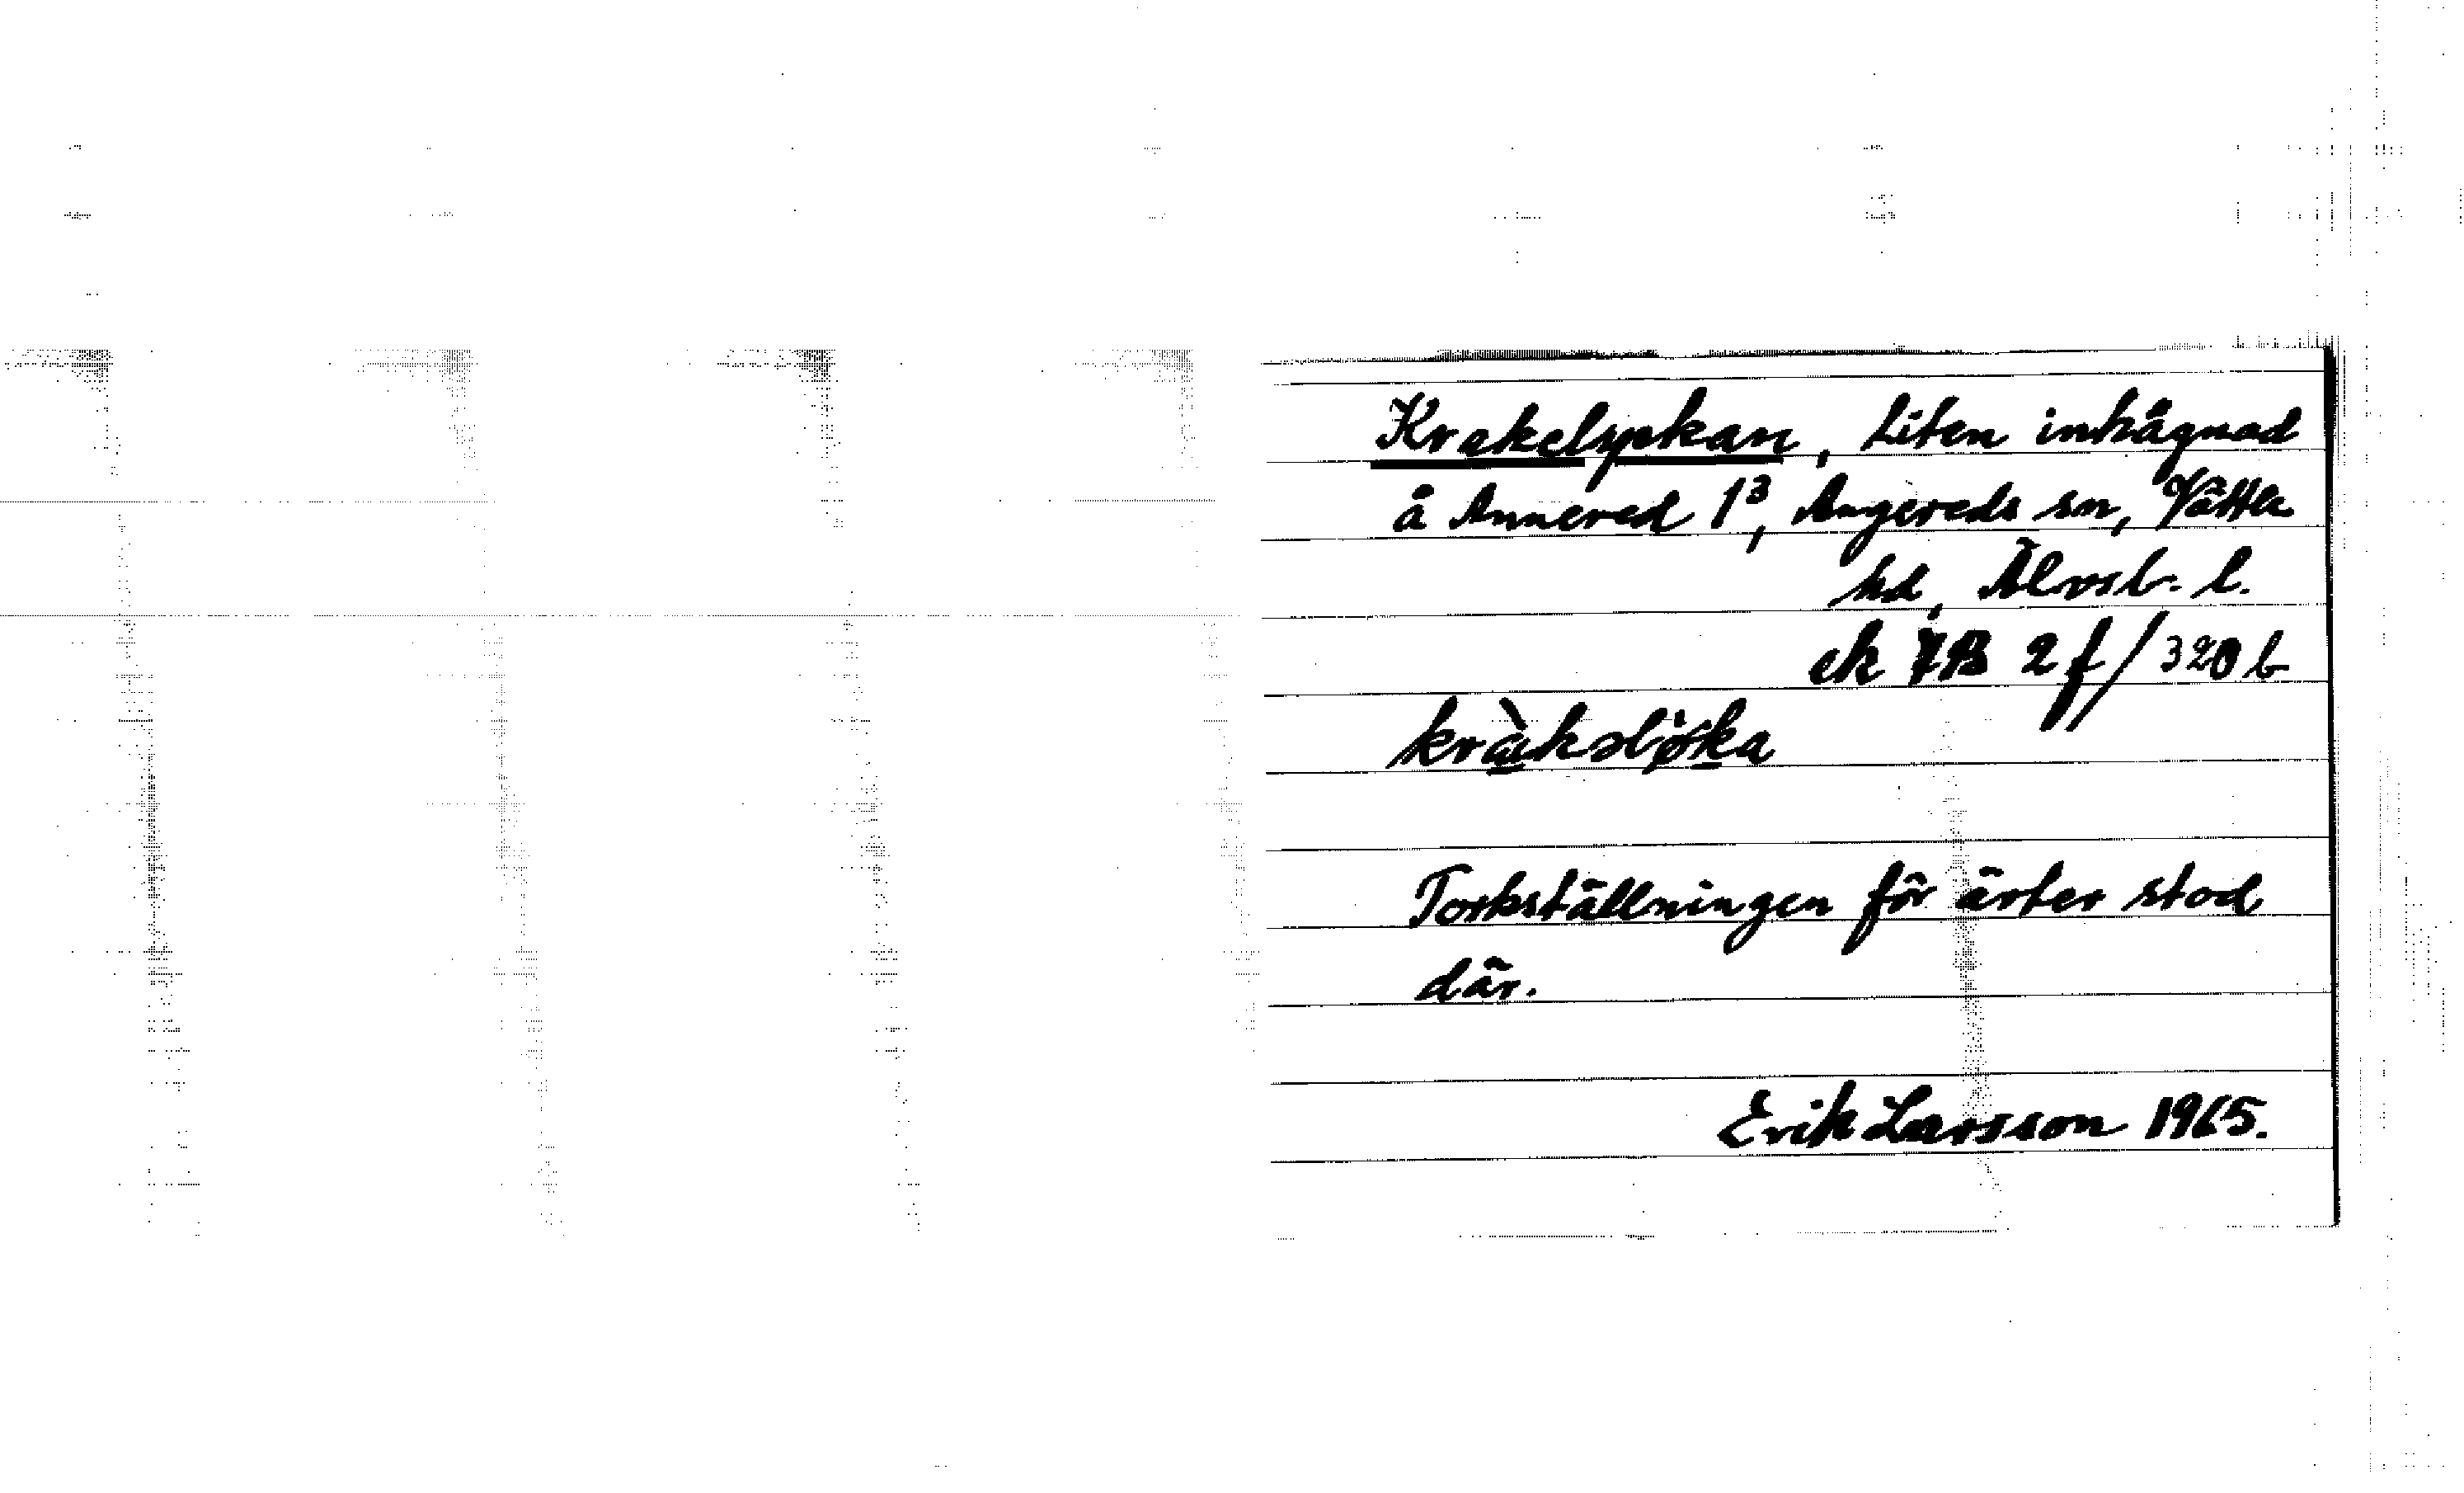 Krakelyckan, Liten inhägnad
å Annered 1³, Angereds sn, Vättle
hd, Älvsb. l.
ek 7B 2f/320 b
Torkställningen för ärter stod
där.
Erik Larsson 1965.